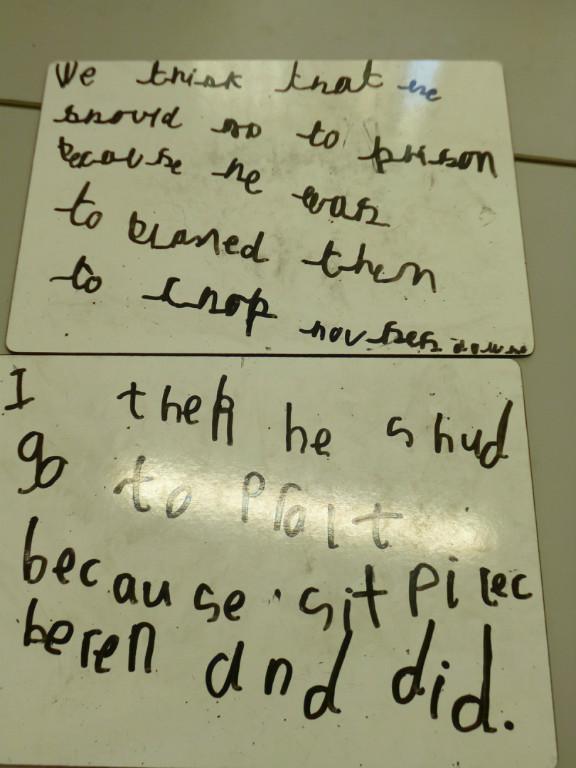 We think that he
should go to prison
because he was
to blamed them
to chop houses down
I thek he shud
go to prait
because sit pi rec
beren and did.